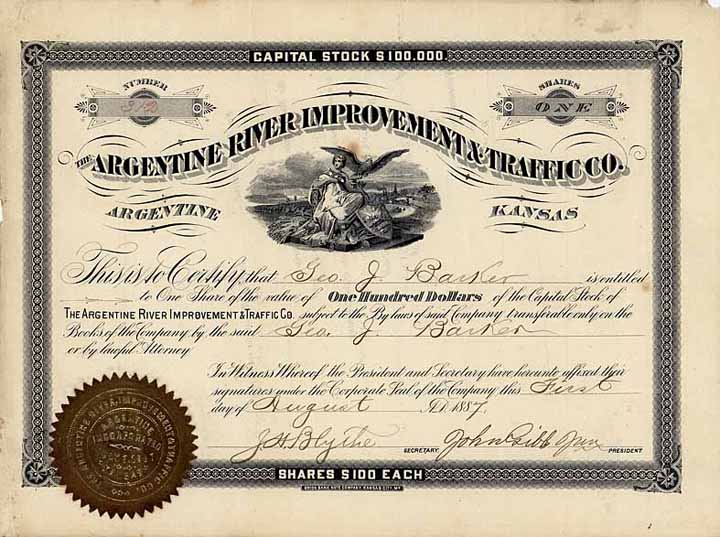 CAPITAL STOCK $100.000.
NUMBER
SHARES
ONE
THE ARGENTINE RIVER IMPROVEMENT & TRAFFIC CO.
ARGENTINE KANSAS
This is to Certify, that Geo. J. Barker is entitled
to One Share of the value of One Hundred Dollars of the Capital Stock of
THE ARGENTINE RIVER IMPROVEMENT & TRAFFIC CO. subject to the By laws of said Company transferable only on the
Books of the Company by the said Geo. J. Barker
or by lawful Attorney
In Witness Whereof, the President and Secretary have hereunto affixed their
signatures under the Corporate Seal of the Company this First
day of August A.D. 1887.
J. H. Blythe SECRETARY. John Gibb PRESIDENT.
SHARES $100 EACH
UNION BANK NOTE COMPANY, KANSAS CITY, MO.
THE ARGENTINE RIVER IMPROVEMENT & TRAFFIC CO.
INCORPORATED